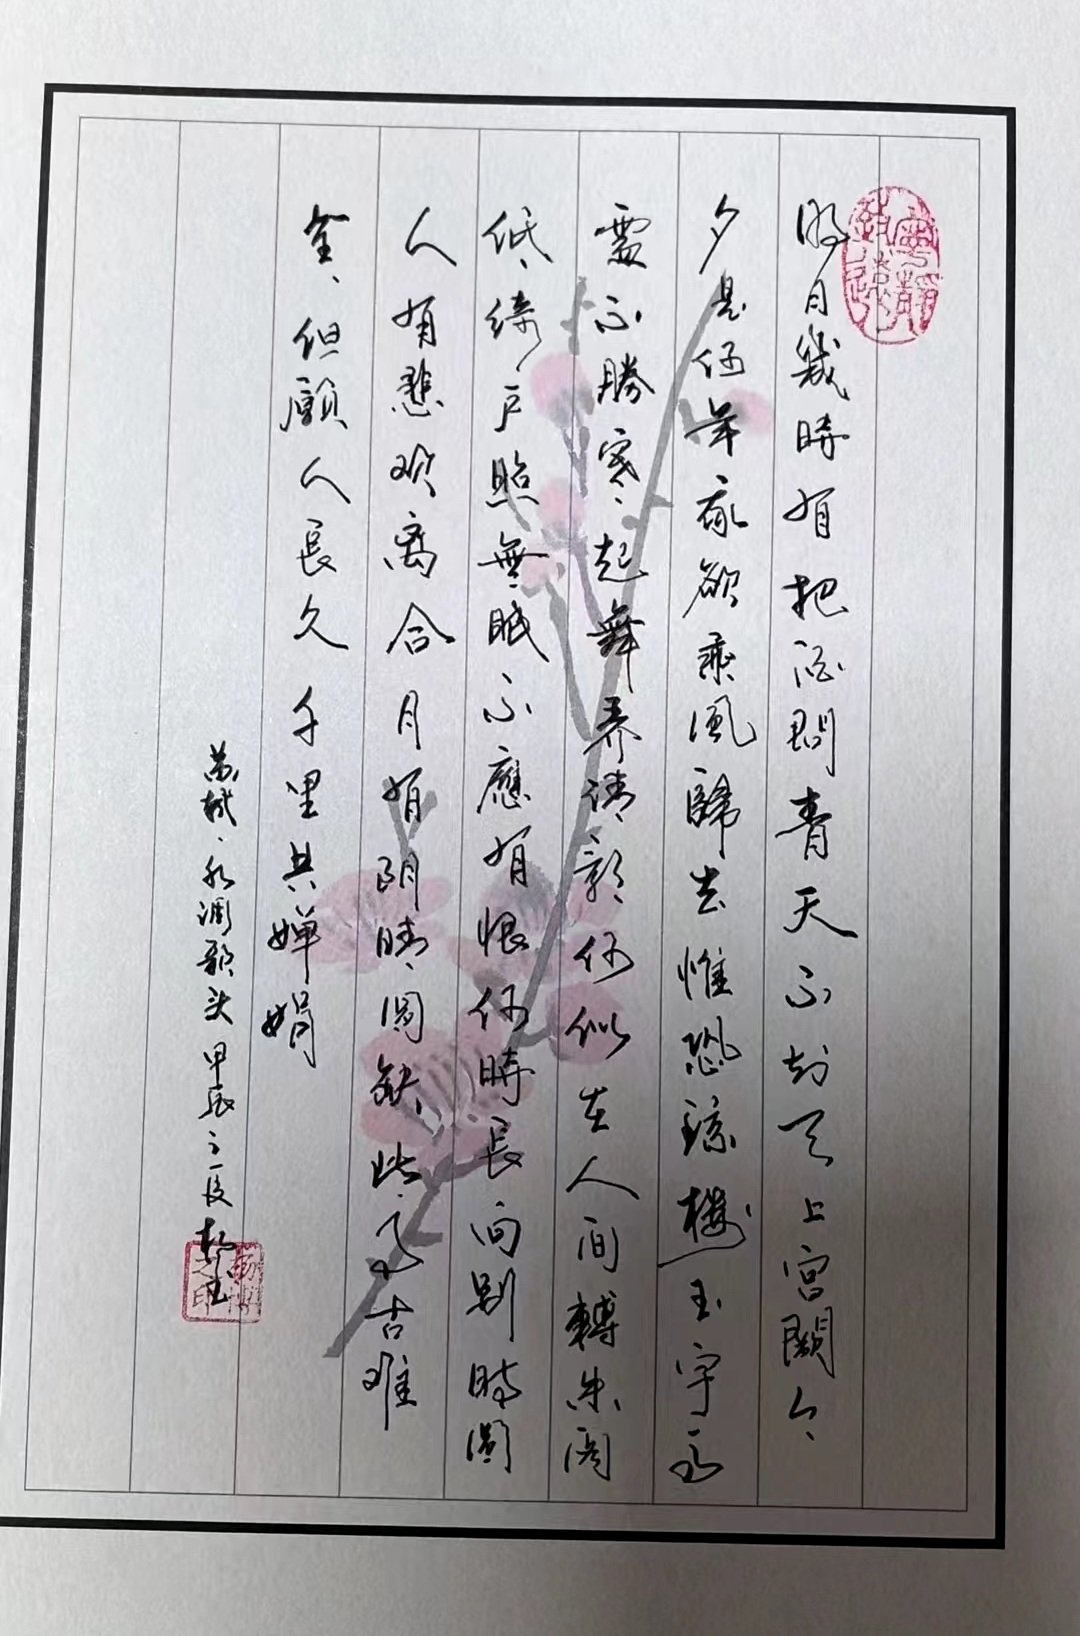 寧靜致遠
明月幾時有把酒問青天不知天上宮闕今
夕是何年我欲乘風歸去惟恐瓊樓玉宇高
處不勝寒起舞弄清影何似在人間轉朱閣
低綺戶照無眠不應有恨何時長向別時圓
人有悲欢离合月有阴晴圓缺此事古难
全但願人長久千里共嬋娟
苏轼水调歌头甲辰之夏
之印